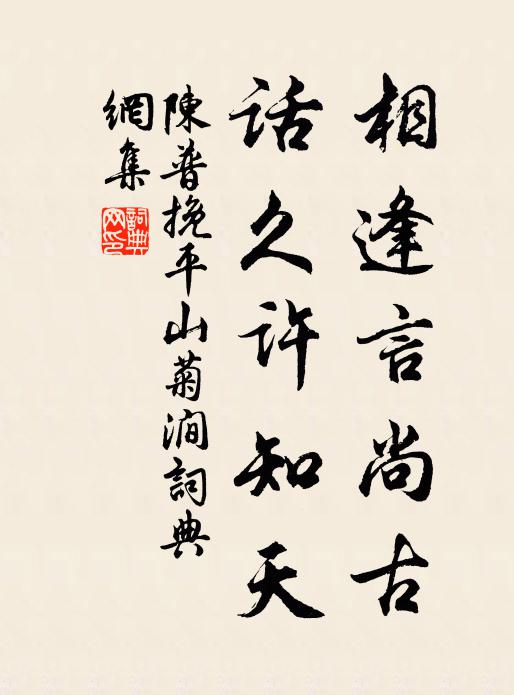 相逢言尚古
話久許知天
陳普挽平山菊澗詞典
網集
詞典
网印